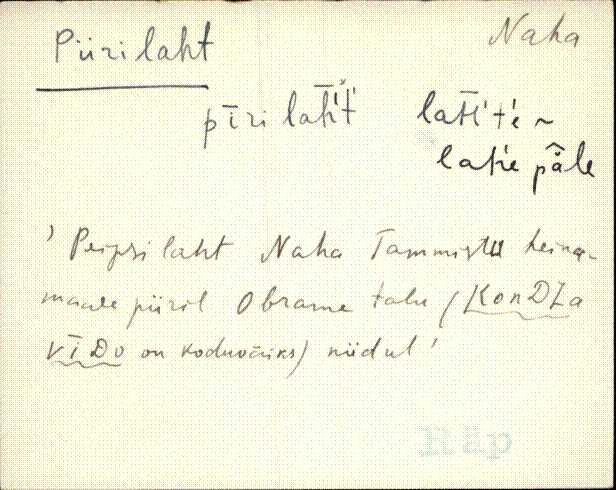 Piirilaht Naha
pīri laht́ lahťťe ~
lahťe pǟle
' Peipsi laht Naha Tammistu heina-
maade piiril Obrame talu (KonDZa
vīDo on koduväiks) niidul '
Räp